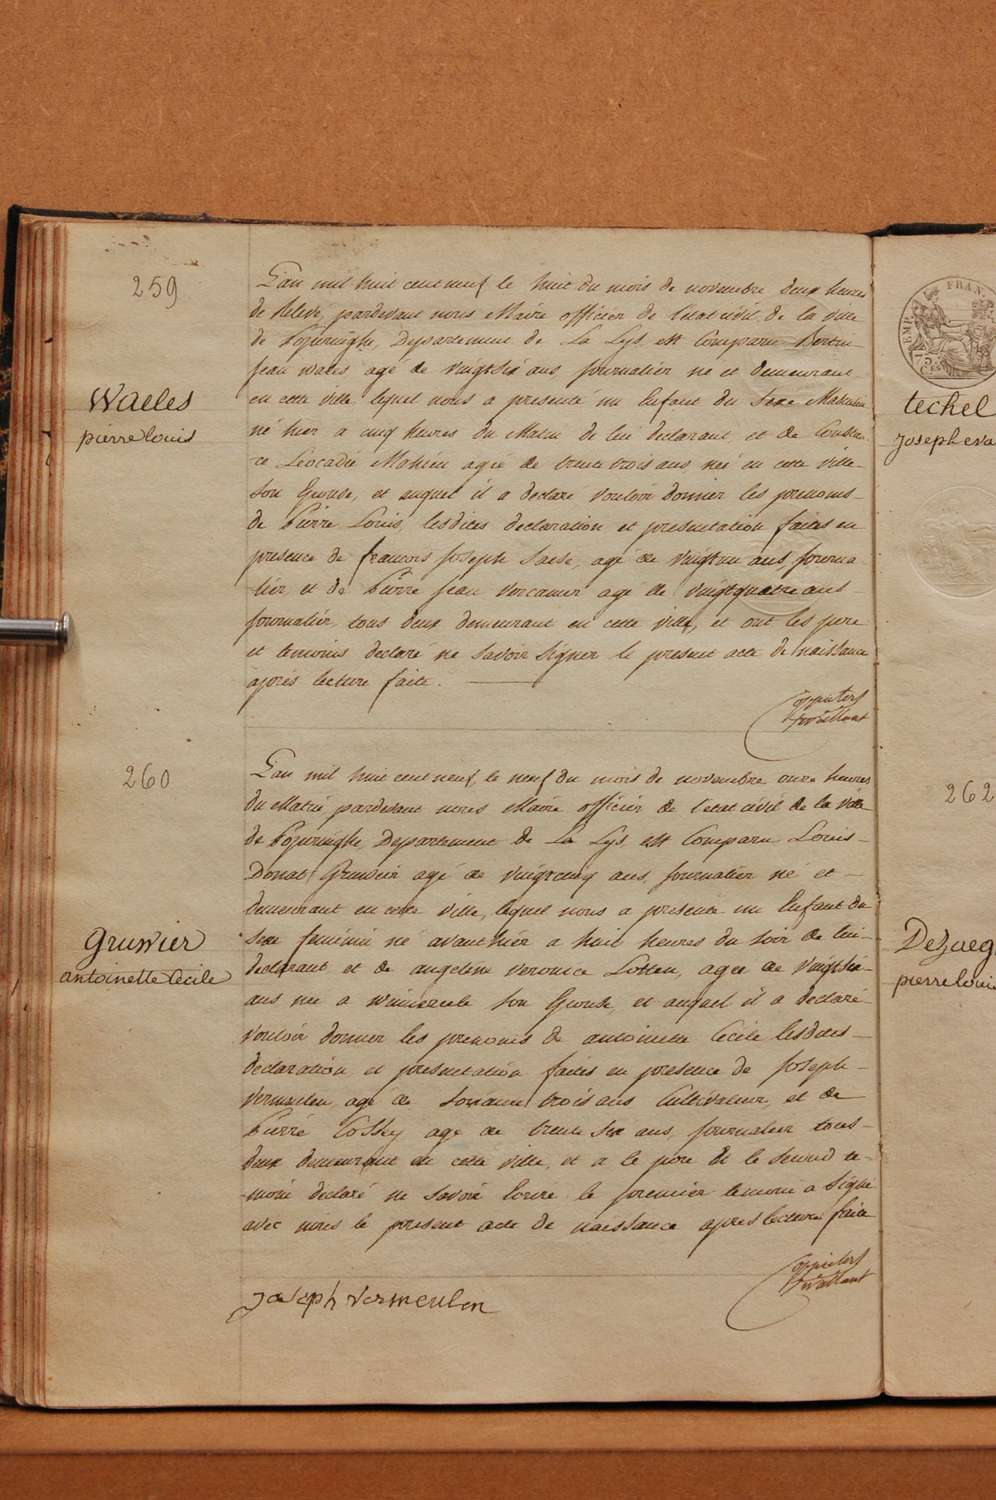 259
Waeles
pierre louis
L'an mil huit cent neuf, le huit du mois de novembre deux heures
de Relevé, pardevant nous Maire officier de l'état civil, de la ville
de Poperinghe, Departement de La Lys, est Comparu Bertin
Jean Waeles agé de vingt six ans, journalier né et demeurant
en cette ville lequel nous a presenté un Enfant du Sexe Masculin
né hier a cinq heures du Matin de lui declarant, et de Constan-
ce Léocadie Mahieu agée de trente trois ans née en cette ville
son Epouse, et auquel il a declaré vouloir donner les prenoms
de Pierre Louis, lesdites declaration et presentation faites en
presence de francois Joseph agé de vingt un ans, journa
lier, et de Pierre Jean agé de vingt quatre ans
journalier, tous deux demeurant en cette ville, et ont les pere
et temoins declaré ne savoir signer le present acte de naissance
après lecture faite.
260
gruwier
antoinette Cecile
L'an mil huit cent neuf, le neuf du mois de novembre onze heures
du Matin pardevant nous Maire officier de l'etat civil de la ville
de Poperinghe, Departement de La Lys, est Comparu Louis
Donat Gruwier agé de vingt cinq ans, journalier né et
demeurant en cette ville, lequel nous a presenté un Enfant du
Sexe feminin né avant hier a huit heures du soir de lui
declarant et de angeline veronice Lotten, agée de vingt six
ans née a son Epouse, et auquel il a declaré
vouloir donner les prenoms de antoinette Cecile lesdites
declaration et presentation faites en presence de Joseph
Vermeulen agé de soixante trois ans Cultivateur, et de
Pierre Cossey agé de trente six ans, journalier tous
deux demeurant en cette ville, et a le pere et le second te-
moin declaré ne savoir Ecrire le premier temoin a signé
avec nous le present acte de naissance après lecture faite
joseph vermeulen
EMP. FRAN.
techel
joseph
262
pierre loui